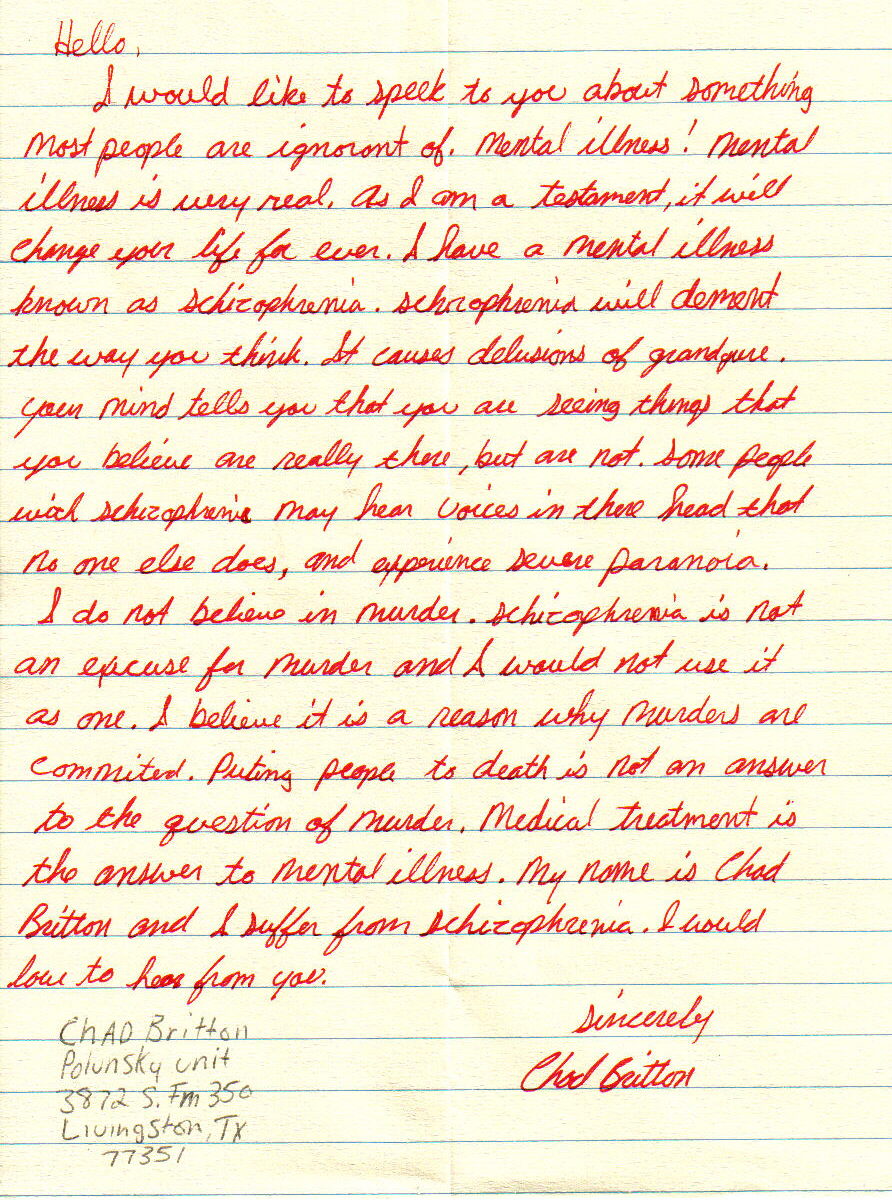 Hello,
I would like to speek to you about something
most people are ignorant of. Mental illness! Mental
illness is very real. As I am a testament, it will
change your life for ever. I have a mental illness
known as schizophrenia. Schizophrenia will dement
the way you think. It causes delusions of grandgure.
Your mind tells you that you are seeing things that
you believe are really there, but are not. Some people
with schizophrenia may hear voices in there head that
no one else does, and experience severe paranoia.
I do not believe in murder. Schizophrenia is not
an excuse for murder and I would not use it
as one. I believe it is a reason why murders are
commited. Puting people to death is not an answer
to the question of murder. Medical treatment is
the answer to mental illness. My name is Chad
Britton and I suffer from schizophrenia. I would
love to hear from you.
Sincerely
Chad Britton
Chad Britton
Polunsky Unit
3872 S. Fm 350
Livingston, Tx
77351